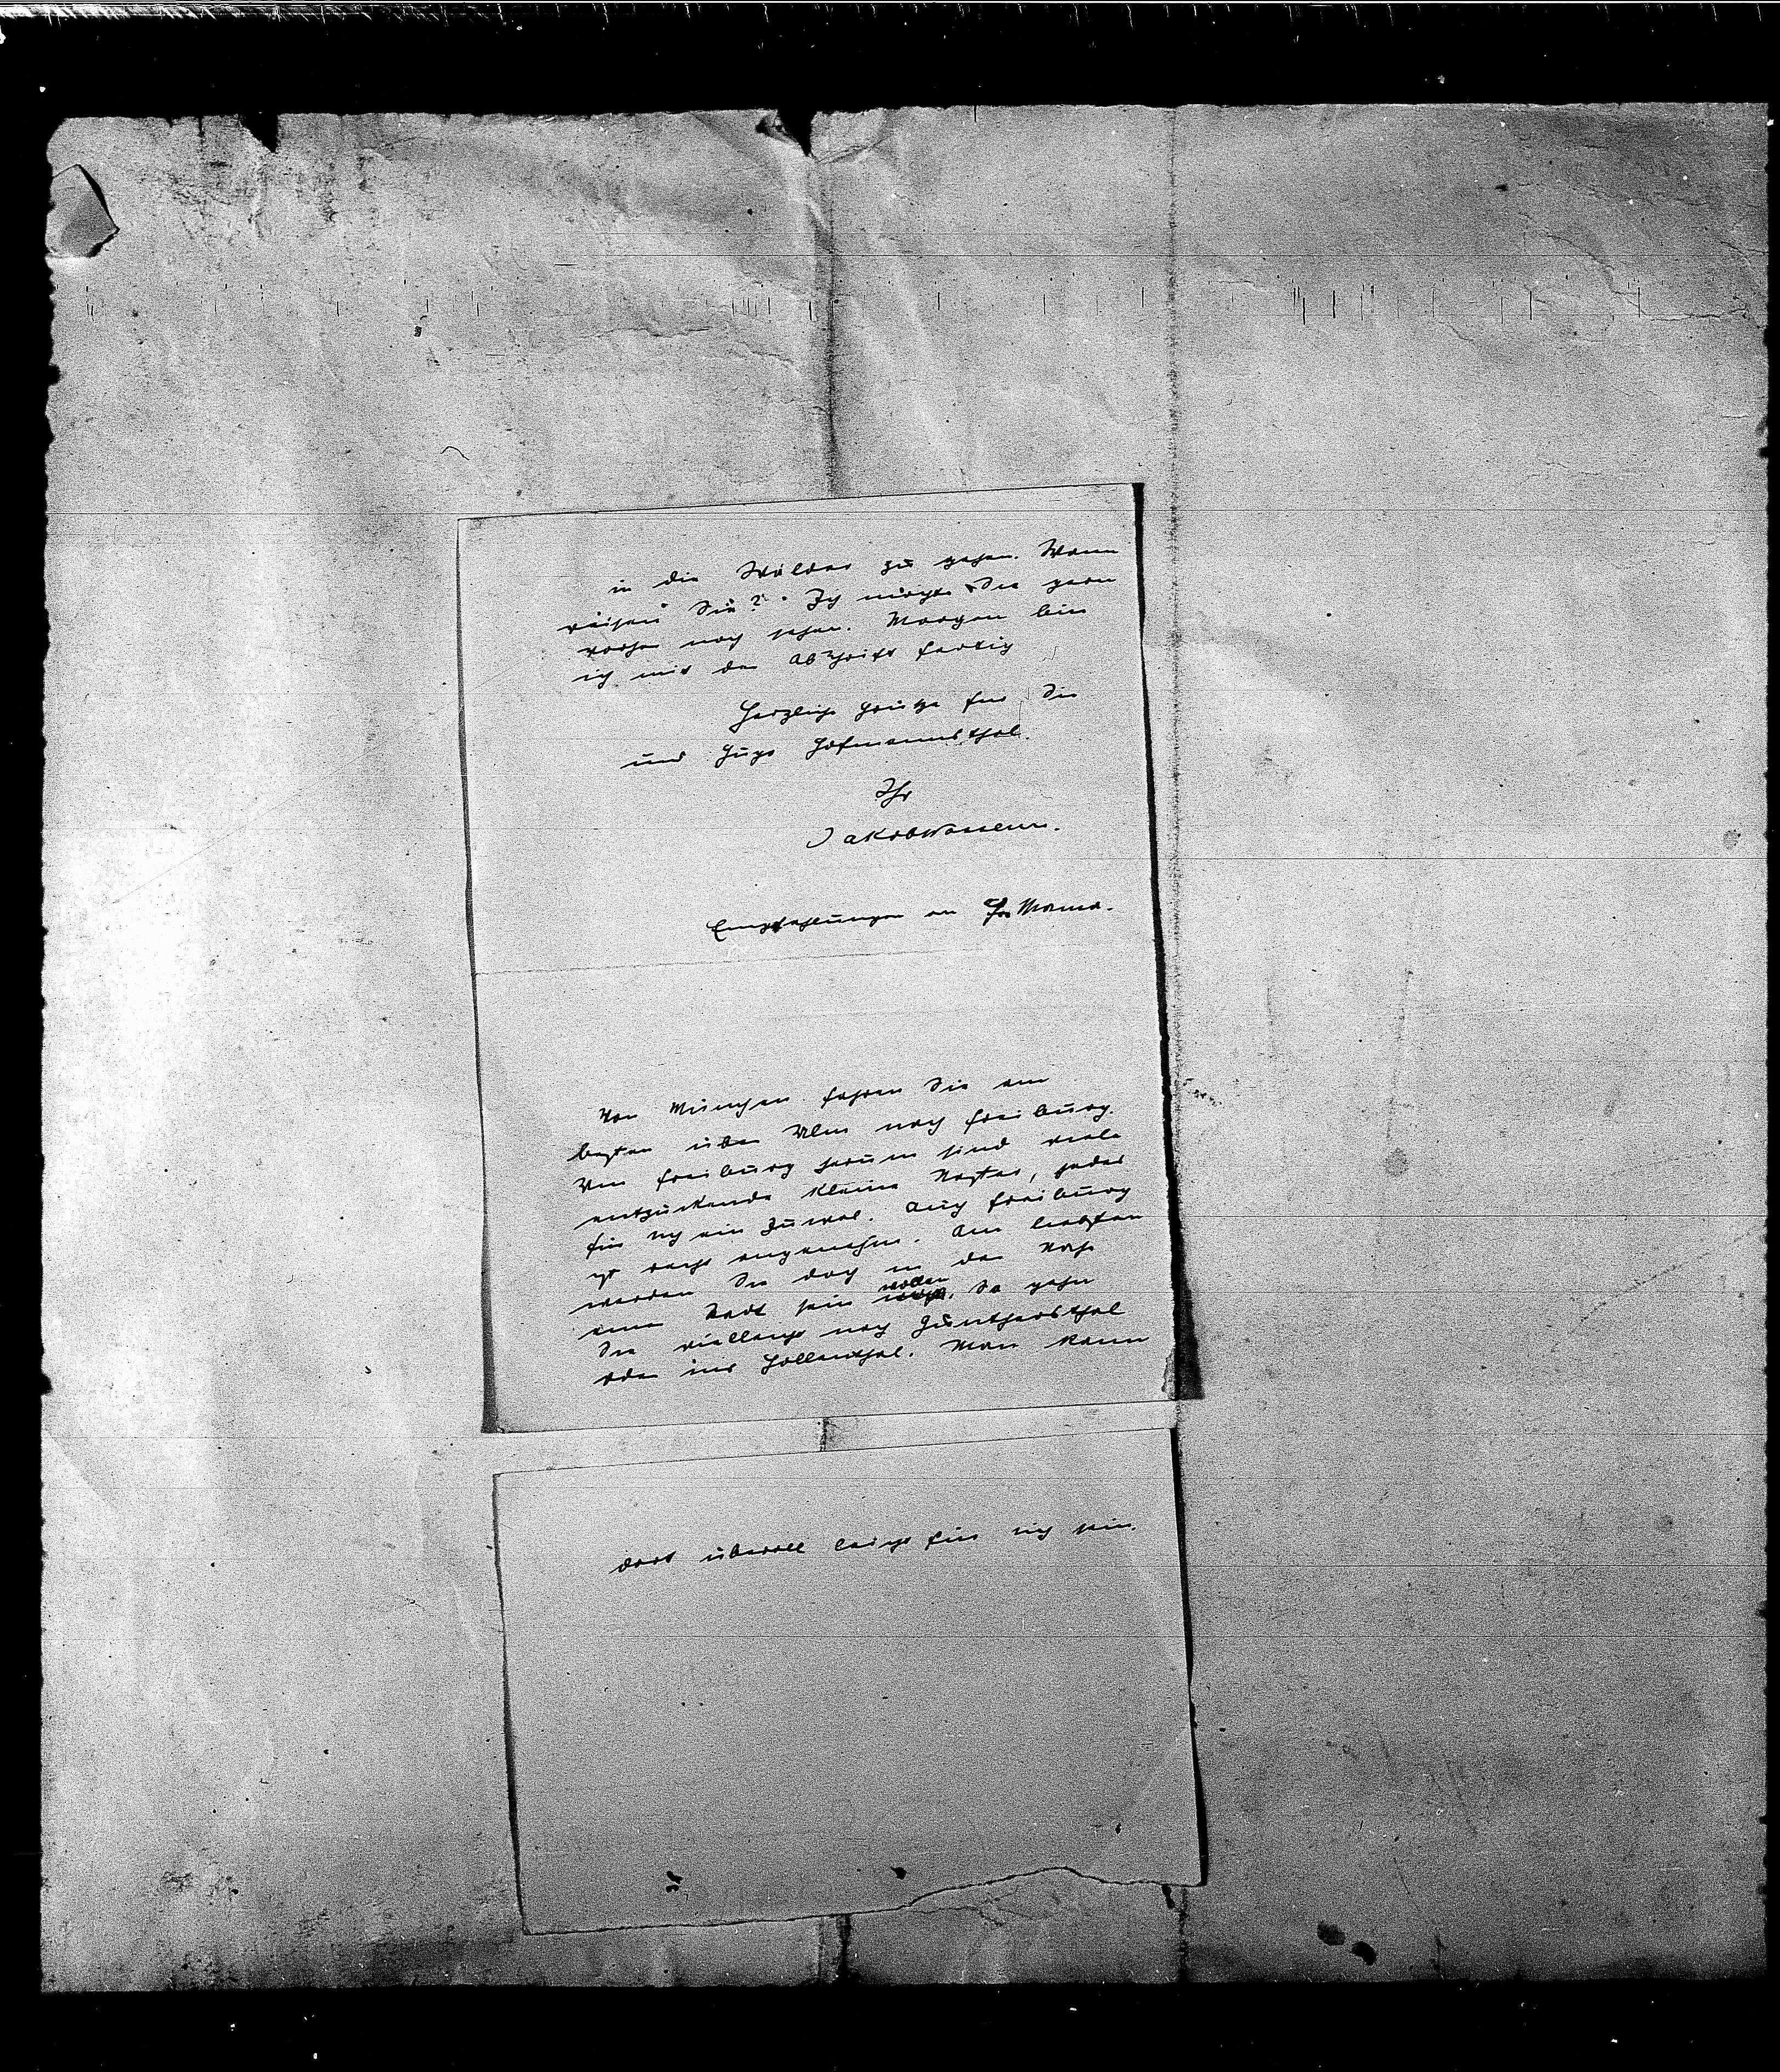 in die Wälder zu gehen. Wann
reisen Sie? Ich möchte Sie gern
vorher noch sehen. Morgen bin
ich mit der Abschrift fertig
Herzliche Grüße für Sie
und Hugo Hofmannsthal.
Ihr
JakobWassermann.
Empfehlungen an Frs Mama.
Von München fahren Sie am
besten über Ulm nach Freiburg.
Um Freiburg herum sind viele
entzückende kleine Nester, jedes
für sich ein Juwel. Auch Freiburg
ist recht angenehm. Am liebsten
werden Sie doch in der Nähe
einer Stadt sein wollen. Da gehn
Sie vielleicht nach Günthersthal
oder ins Höllenthal. Man kann
dort überall leicht für sich sein.